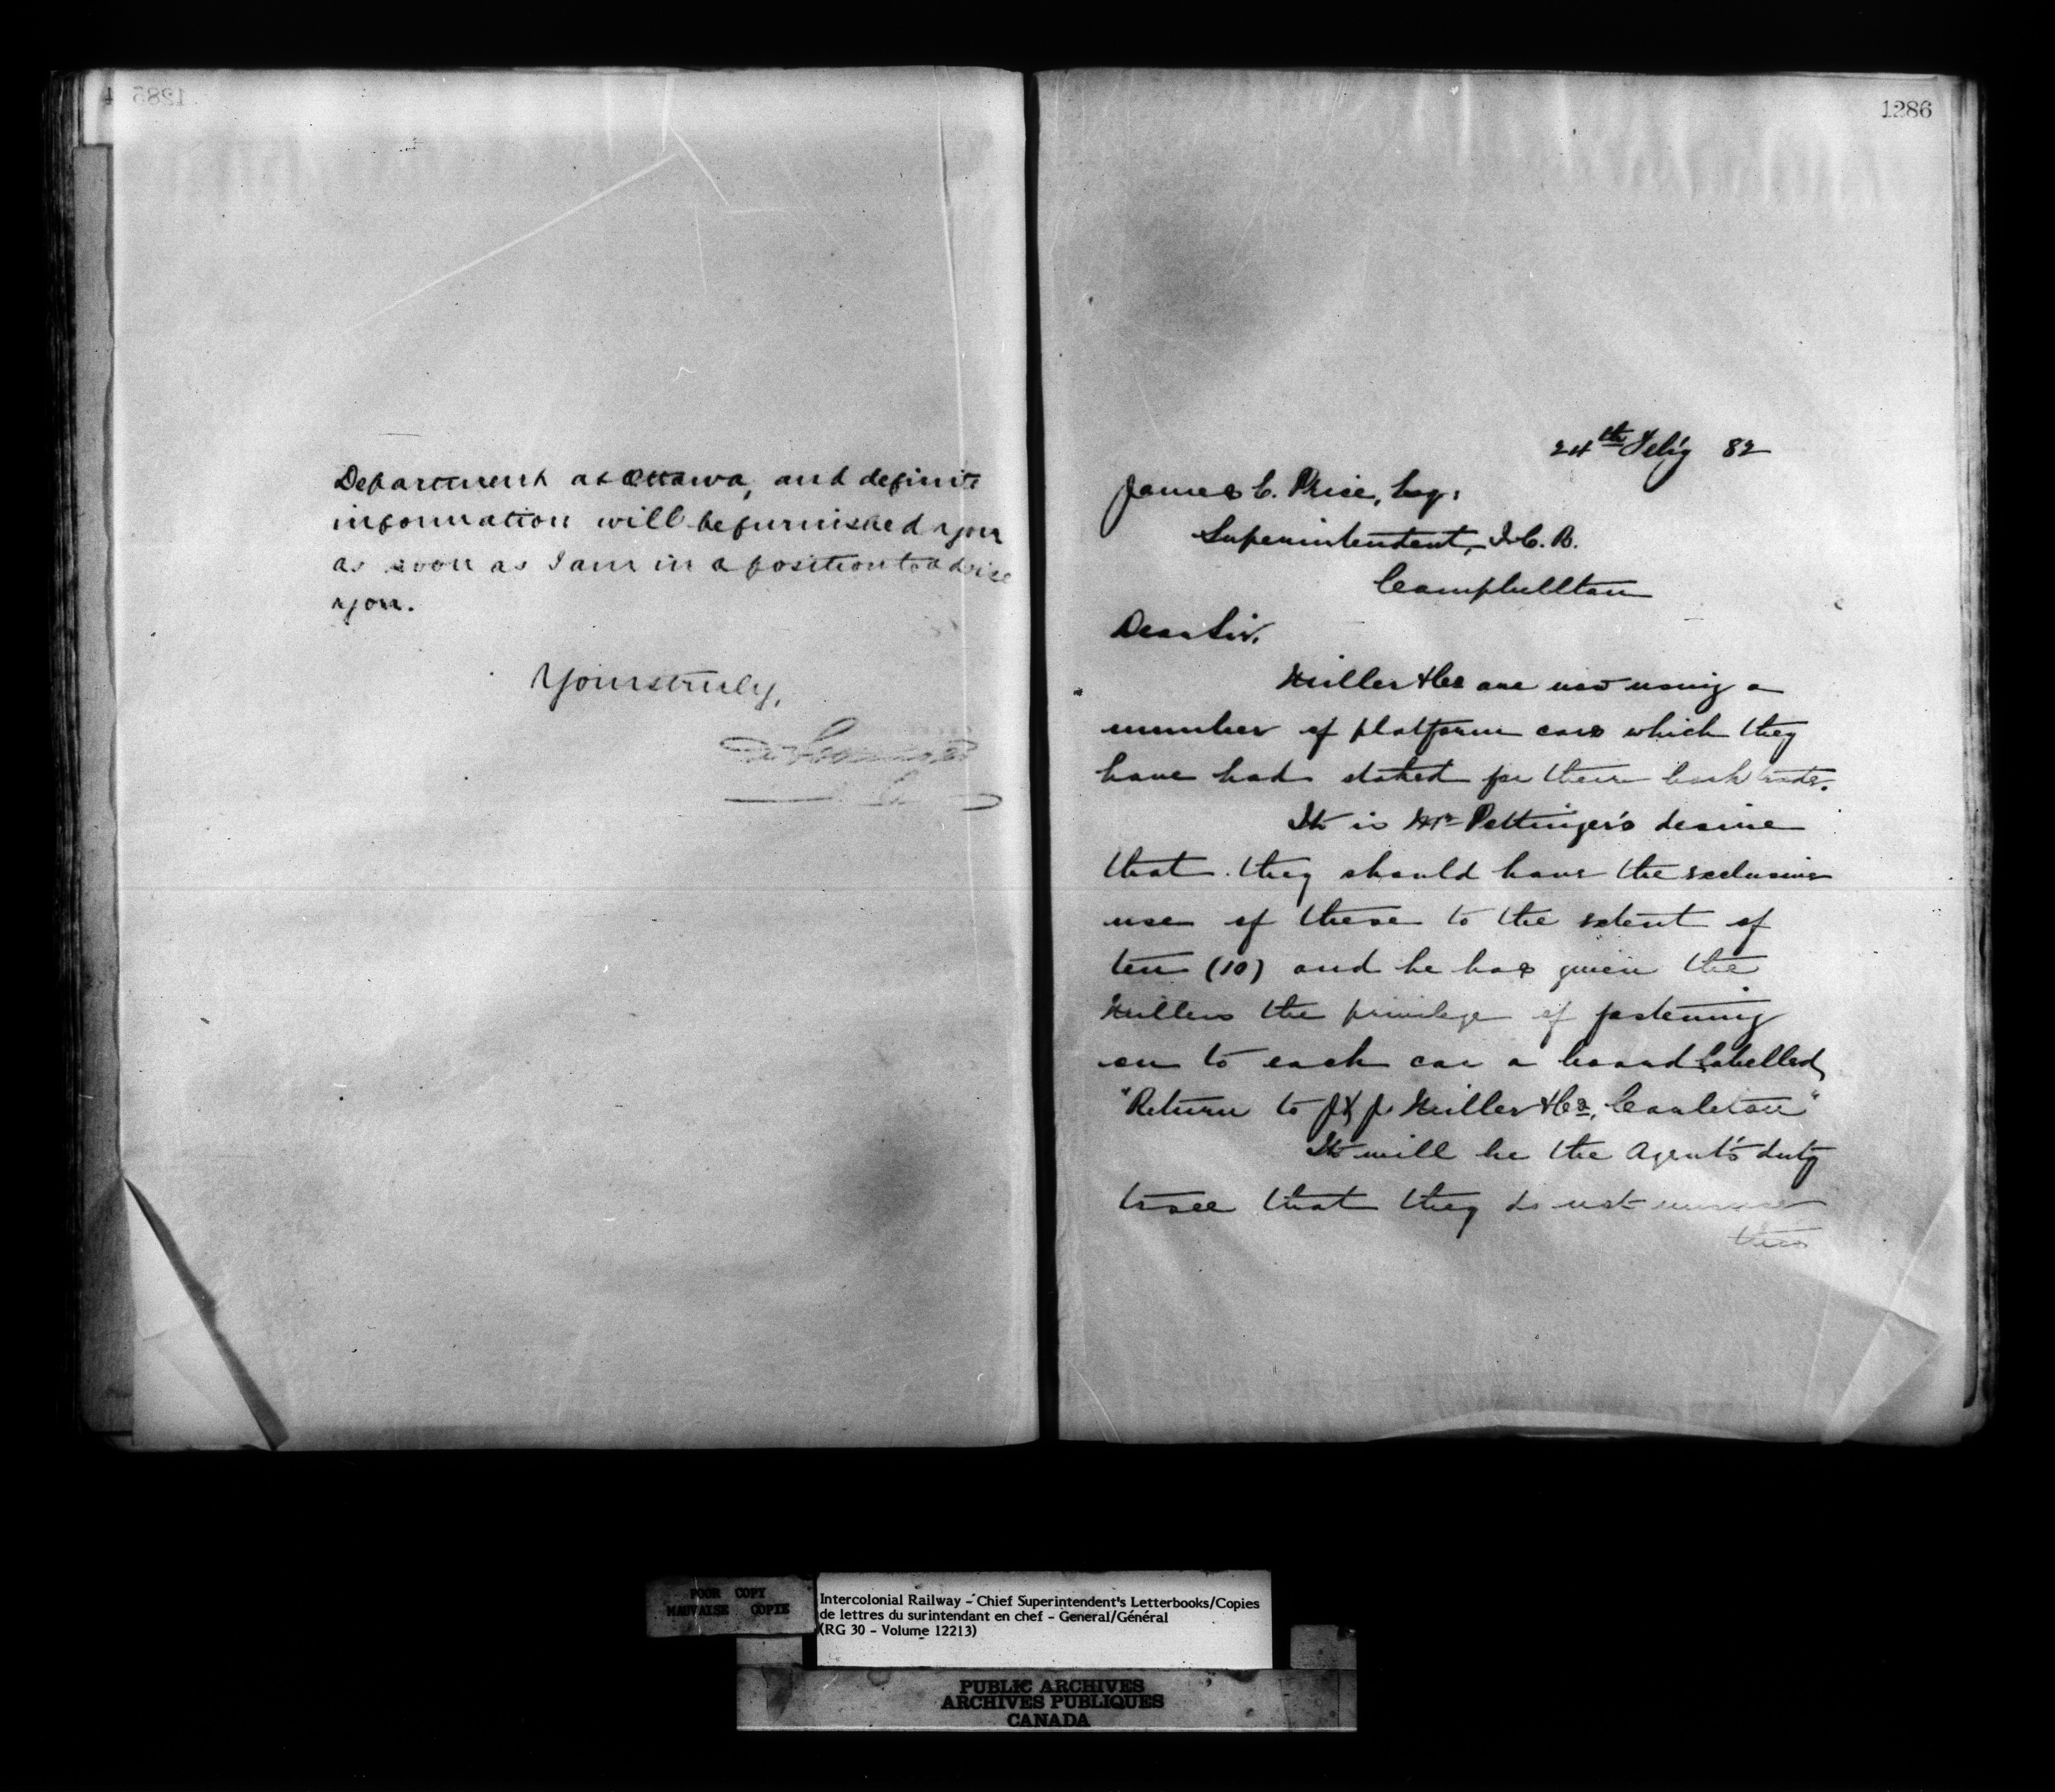 1285
Department at Ottawa, and definite
information will be furnished you
as soon as I am in a position to advise
you.
Yours truly,
1286
24th Feb'y 82
James C. Price, Esq:
Superintendent, I.C.R.
Campbellton
Dear Sir,
Miller & Co are now using a
number of platform cars which they
have had staked for their bark trade.
It is Mr Pottinger's desire
that they should have the exclusive
use of these to the extent of
ten (10) and he has given the
Millers the privilege of fastening
on to each car a board labelled,
"Return to J & J. Miller & Co, Carleton"
It will be the Agent's duty
to see that they do not
this
POOR COPY
MAUVAISE COPIE
Intercolonial Railway - Chief Superintendent's Letterbooks/Copies
de lettres du surintendant en chef - General/Général
(RG 30 - Volume 12213)
PUBLIC ARCHIVES
ARCHIVES PUBLIQUES
CANADA